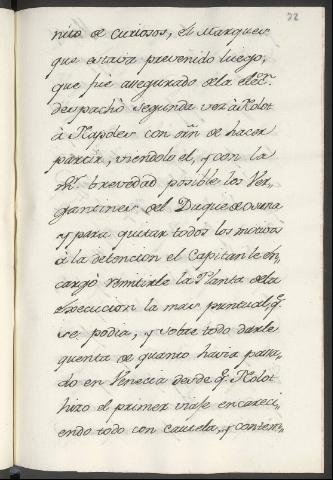 72
nito de curiosos, el Marques
que estava prevenido luego,
que fue assegurado dela elec.ⁿ
despachò segunda vez à Nolot
à Napoles con orn̄ de hacer
partir, viendolo el, y con la
m.ʳ brevedad posible los Ver-
gantines del Duque de Osuna
y para quitar todos los motivos
à la detencion el Capitan le en-
cargò remitirle la Planta dela
execucion la mas puntual, q.
se podia, y sobre todo darle
quenta de quanto havia passa-
do en Venecia desde q. Nolot
hizo el primer viaje encareci-
endo todo con cautela, y contem-